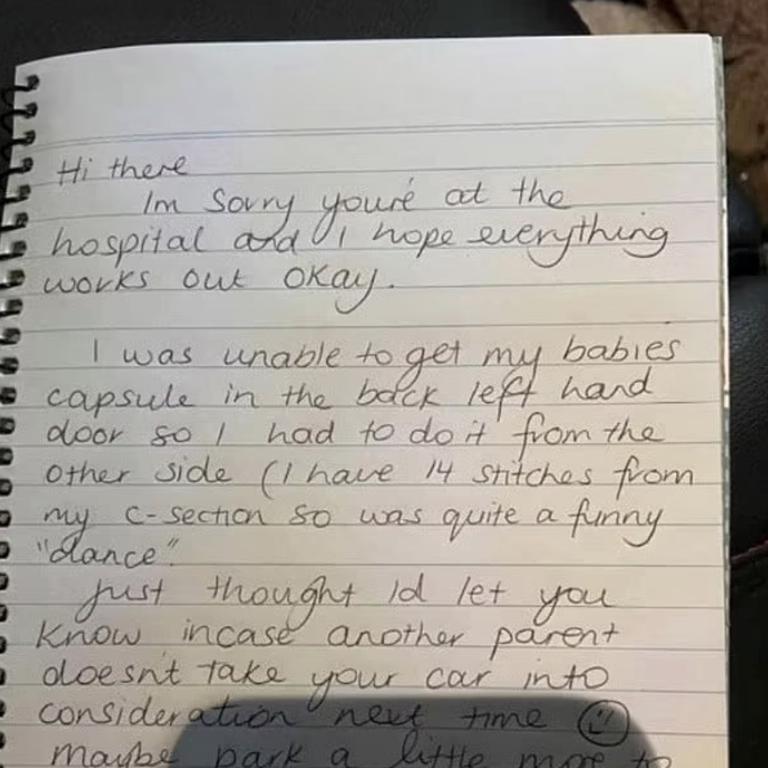 Hi there
Im Sorry you're at the
hospital and I hope everything
works out okay.
I was unable to get my babies
capsule in the back left hand
door so I had to do it from the
other side (I have 14 stitches from
my c-section so was quite a funny
"dance".
Just thought Id let you
know incase another parent
doesn't take your car into
consideration next time
maybe park a little more to